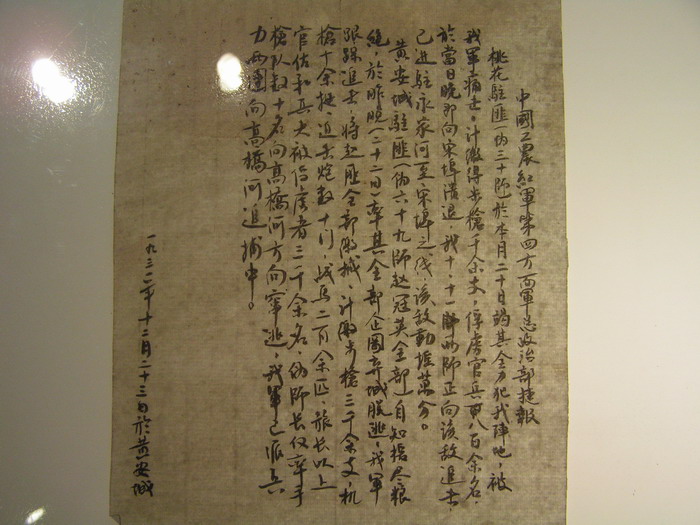 中國工農紅軍第四方面軍总政治部捷報
桃花駐匪(伪三十師)於本月二十日竭其全力犯我陣地,被
我軍痛击,计缴得步槍千余支,俘虜官兵八百余名,
於當日晚即向宋埠潰退,我十、十一師正向該敵追击,
已進駐永家河至宋埠之线,該敵動摇萬分。
黄安城駐匪(伪六十九師赵冠英全部)自知槍尽粮
絕,於昨晚(二十二日)率其全部企圖弃城脱逃,我軍
跟踪追击,将赵匪全部消滅,计缴步槍三千余支,机
槍十余挺,迫击炮数十门,战马二百余匹,旅长以上
官佐和兵夫被俘虏者三千余名,伪师长仅率手
槍队数十名向高橋河方向窜逃,我軍已派兵
力两團向高橋河追捕中。
一九三二年十二月二十三日於黄安城